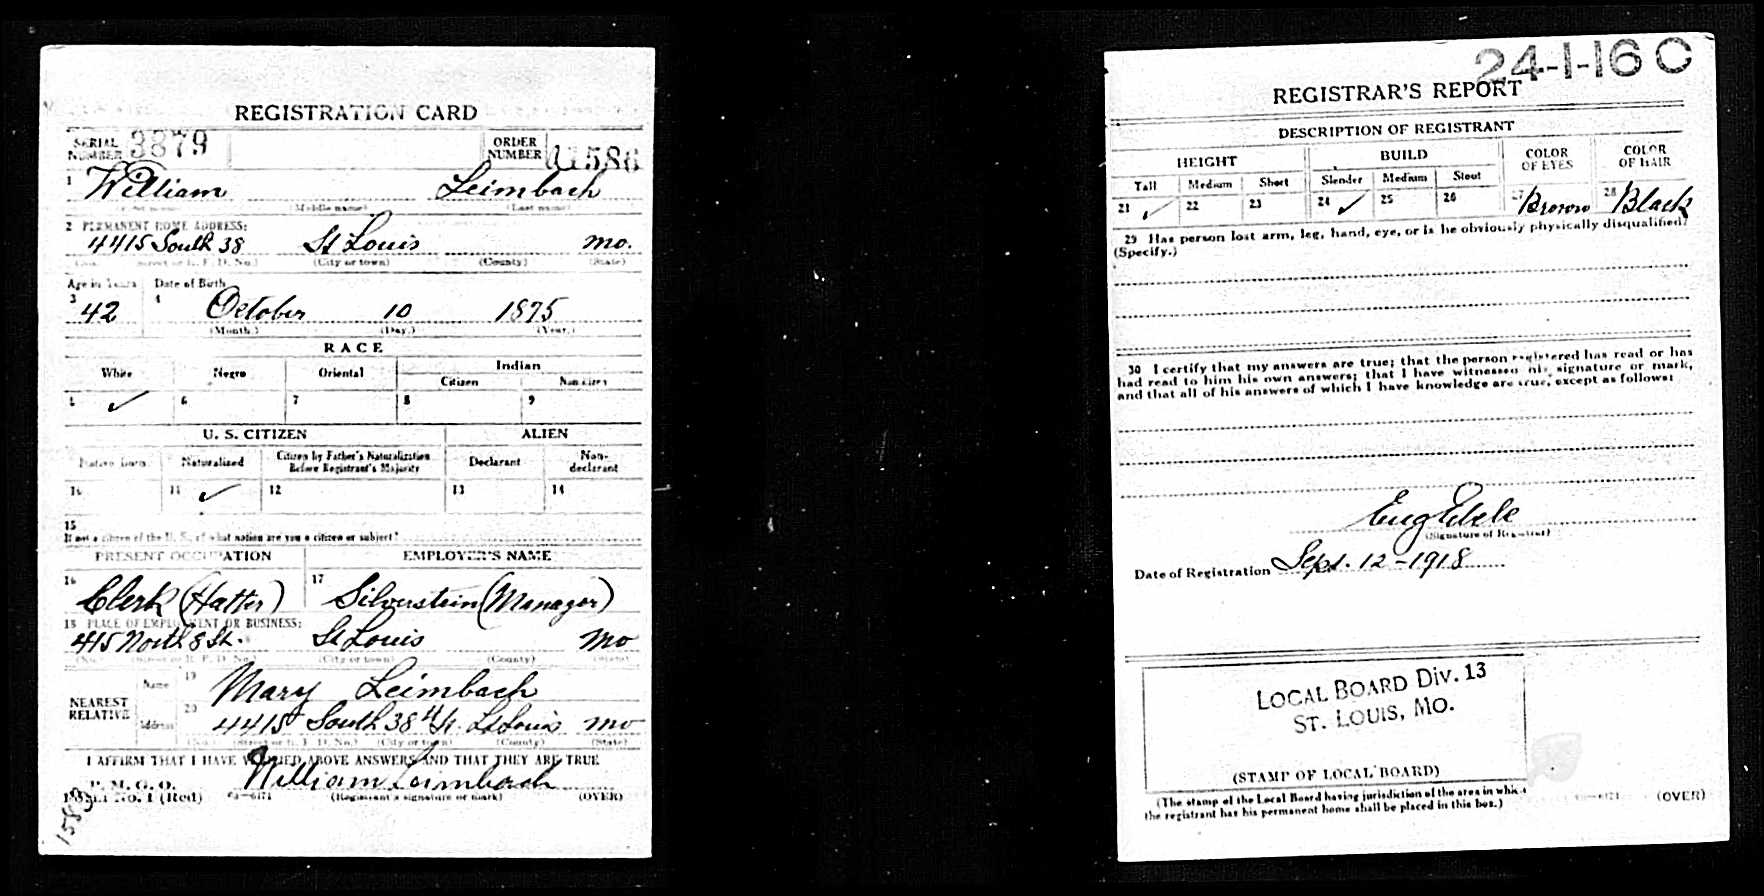 REGISTRATION CARD
SERIAL NUMBER 3879 ORDER NUMBER 11586
1 William Leimbach
(Middle name) (Last name)
2 PERMANENT HOME ADDRESS:
4415 South 38 St Louis Mo.
(No.) (Street or R. F. D. No.) (City or town) (County) (State)
Age in Years Date of Birth
3 42 4 October 10 1875
(Month.) (Day.) (Year.)
RACE
White Negro Oriental Indian
Citizen Noncitizen
5 ✓ 6 7 8 9
U. S. CITIZEN ALIEN
Native Born Naturalized Citizen by Father's Naturalization Before Registrant's Majority Declarant Non-declarant
10 11 ✓ 12 13 14
15
If not a citizen of the U. S., of what nation are you a citizen or subject?
PRESENT OCCUPATION EMPLOYER'S NAME
16 Clerk (Hatter) 17 Silverstein (Manager)
18 PLACE OF EMPLOYMENT OR BUSINESS:
415 North 8 St. St Louis Mo
(No.) (Street or R. F. D. No.) (City or town) (County) (State)
NEAREST RELATIVE Name 19 Mary Leimbach
Address 20 4415 South 38 St. St Louis Mo
(No.) (Street or R. F. D. No.) (City or town) (County) (State)
I AFFIRM THAT I HAVE VERIFIED ABOVE ANSWERS AND THAT THEY ARE TRUE
P. M. G. O.
Form No. 1 (Red) William Leimbach
(Registrant's signature or mark) (OVER)
24-1-16 C
REGISTRAR'S REPORT
DESCRIPTION OF REGISTRANT
HEIGHT BUILD COLOR OF EYES COLOR OF HAIR
Tall Medium Short Slender Medium Stout
21 ✓ 22 23 24 ✓ 25 26 27 Brown 28 Black
29 Has person lost arm, leg, hand, eye, or is he obviously physically disqualified?
(Specify.)
30 I certify that my answers are true; that the person registered has read or has
had read to him his own answers; that I have witnessed his signature or mark,
and that all of his answers of which I have knowledge are true, except as follows:
Eug Eberle
(Signature of Registrar)
Date of Registration Sept. 12-1918
LOCAL BOARD Div. 13
ST. LOUIS, MO.
(STAMP OF LOCAL BOARD)
(The stamp of the Local Board having jurisdiction of the area in which
the registrant has his permanent home shall be placed in this box.)
(OVER)